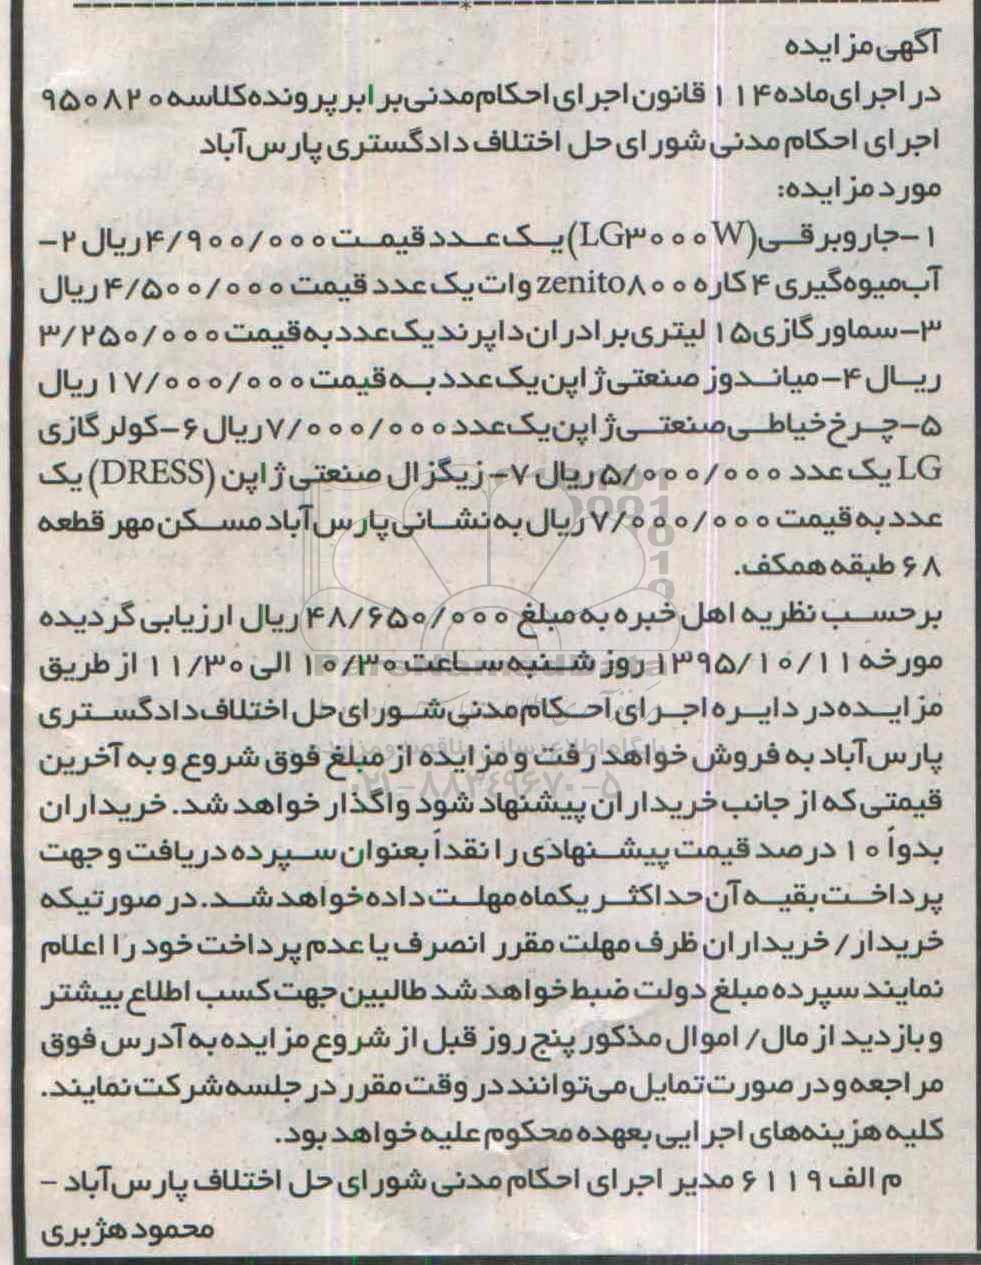 آگهی مزایده
در اجرای ماده ۱۱۴ قانون اجرای احکام مدنی برابر پرونده کلاسه ۹۵۰۸۲۰
اجرای احکام مدنی شورای حل اختلاف دادگستری پارس‌آباد
مورد مزایده:
۱-جاروبرقی(LG۳۰۰۰W)یک عدد قیمت ۴/۹۰۰/۰۰۰ریال ۲-
آب‌میوه‌گیری ۴ کاره zenito۸۰۰ وات یک عدد قیمت ۴/۵۰۰/۰۰۰ ریال
۳-سماور گازی ۱۵ لیتری برادران داپرند یک عدد به قیمت ۳/۲۵۰/۰۰۰
ریال ۴-میاندوز صنعتی ژاپن یک عدد به قیمت ۱۷/۰۰۰/۰۰۰ ریال
۵-چرخ خیاطی صنعتی ژاپن یک عدد ۷/۰۰۰/۰۰۰ریال ۶-کولر گازی
LG یک عدد ۵/۰۰۰/۰۰۰ریال ۷-زیگزال صنعتی ژاپن (DRESS) یک
عدد به قیمت ۷/۰۰۰/۰۰۰ریال به نشانی پارس‌آباد مسکن مهر قطعه
۶۸ طبقه همکف.
برحسب نظریه اهل خبره به مبلغ ۴۸/۶۵۰/۰۰۰ ریال ارزیابی گردیده
مورخه ۱۳۹۵/۱۰/۱۱ روز شنبه ساعت ۱۰/۳۰ الی ۱۱/۳۰ از طریق
مزایده در دایره اجرای احکام مدنی شورای حل اختلاف دادگستری
پارس‌آباد به فروش خواهد رفت و مزایده از مبلغ فوق شروع و به آخرین
قیمتی که از جانب خریداران پیشنهاد شود واگذار خواهد شد. خریداران
بدواً ۱۰ درصد قیمت پیشنهادی را نقداً بعنوان سپرده دریافت و جهت
پرداخت بقیه آن حداکثر یکماه مهلت داده خواهد شد. در صورتیکه
خریدار/ خریداران ظرف مهلت مقرر انصرف یا عدم پرداخت خود را اعلام
نمایند سپرده مبلغ دولت ضبط خواهد شد طالبین جهت کسب اطلاع بیشتر
و بازدید از مال/ اموال مذکور پنج روز قبل از شروع مزایده به آدرس فوق
مراجعه و در صورت تمایل می‌توانند در وقت مقرر در جلسه شرکت نمایند.
کلیه هزینه‌های اجرایی بعهده محکوم علیه خواهد بود.
م الف ۶۱۱۹ مدیر اجرای احکام مدنی شورای حل اختلاف پارس‌آباد -
محمود هژبری
ParsNamadData
پایگاه اطلاع رسانی مناقصه و مزایده
۰۲۱-۸۸۳۴۹۶۷۰-۵